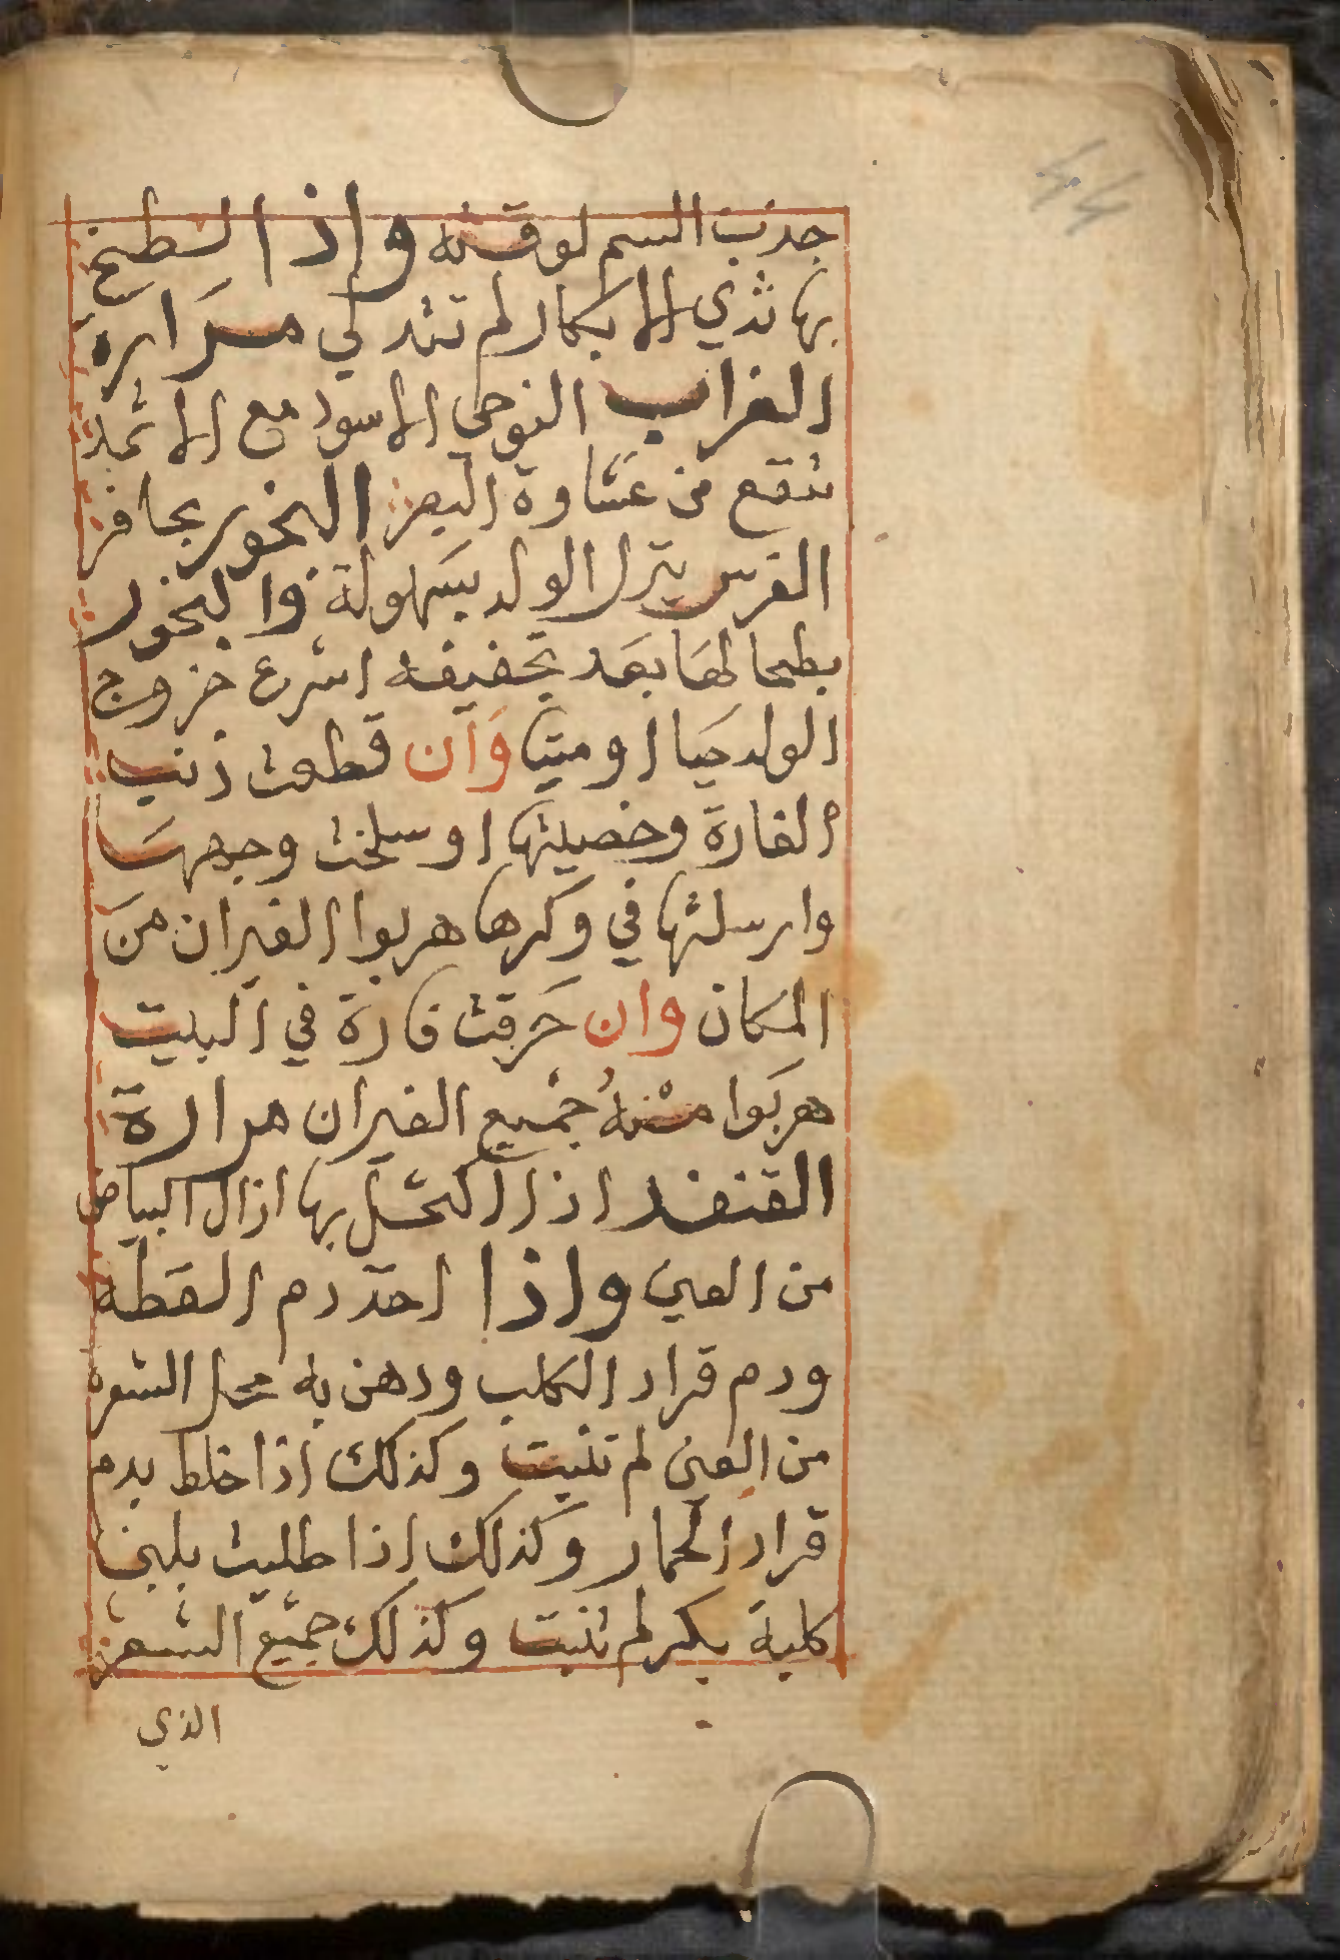 44
جذب السم لوقته واذا لطخ
بها ثدي الابكار لم تتدلي مرارة
الغراب النوحي الاسود مع الاثمد
تنفع من غشاوة البصر البخور بحافر
الفرس ينزل الولد بسهولة والبخور
بطحالها بعد تجفيفه اسرع خروج
الولد حيا او ميتا وان قطعت ذنب
الفارة وخصيتها او سلخت وجهها
وارسلتها في وكرها هربوا الفيران من
المكان وان حرقت فارة في البيت
هربوا منه جميع الفيران مرارة
القنفد اذا اكتحل بها ازال البياض
من العين واذا اخذ دم القطه
ودم قراد الكلب ودهن به محل الشعره
من العين لم تنبت وكذلك اذا خلط بدم
قراد الحمار وكذلك اذا طليت بلبن
كلبة بكر لم تنبت وكذلك جميع الشعر
الذي